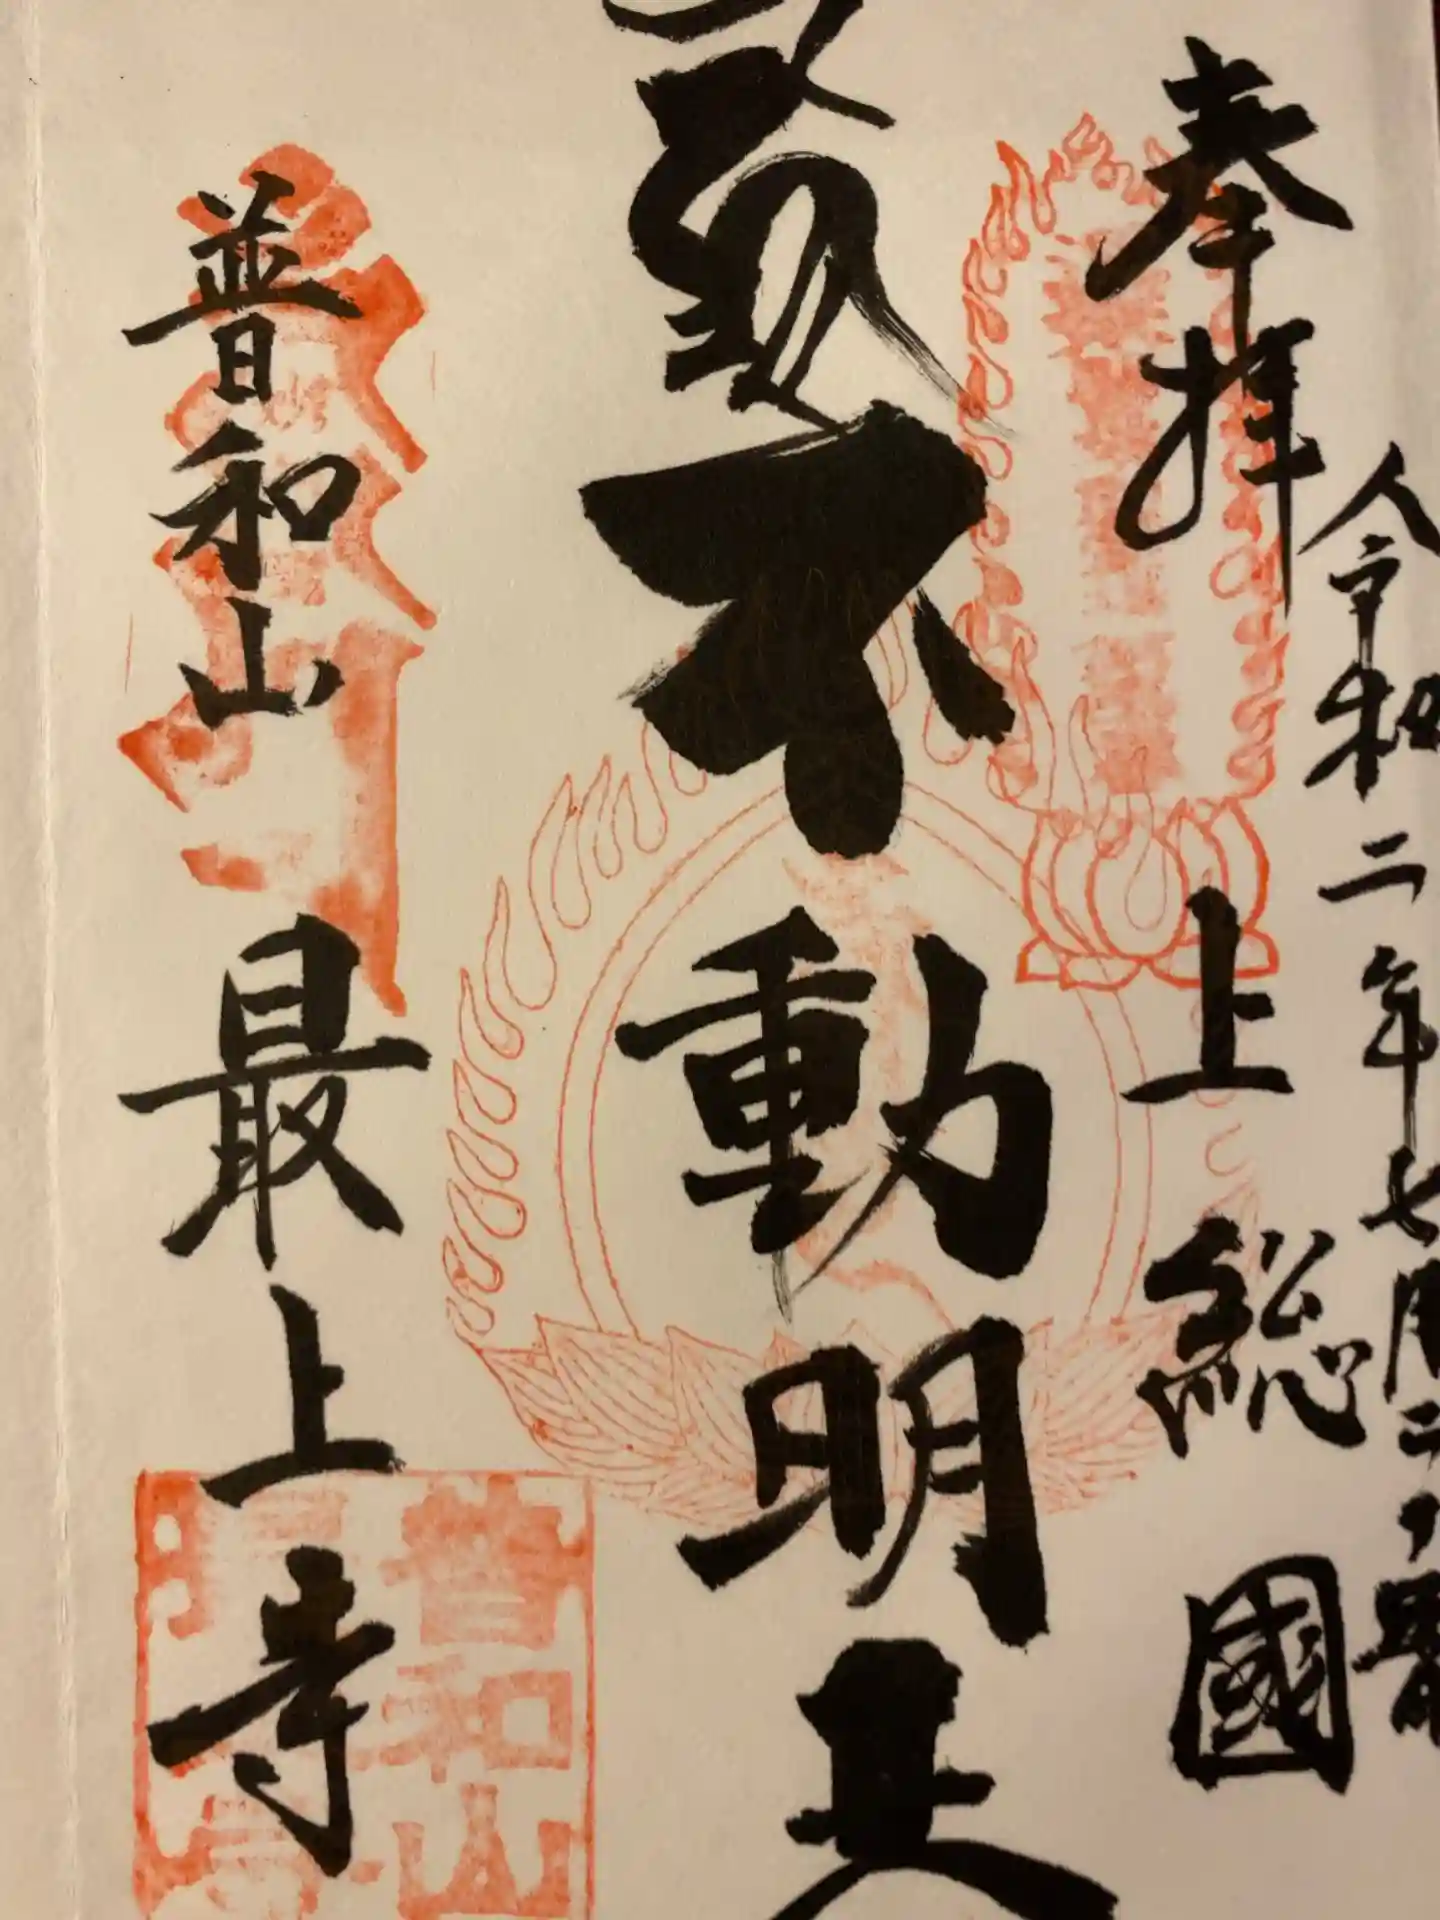 令和二年七月二十
奉拝 上総國
不動明王
普和山 最上寺
普和山